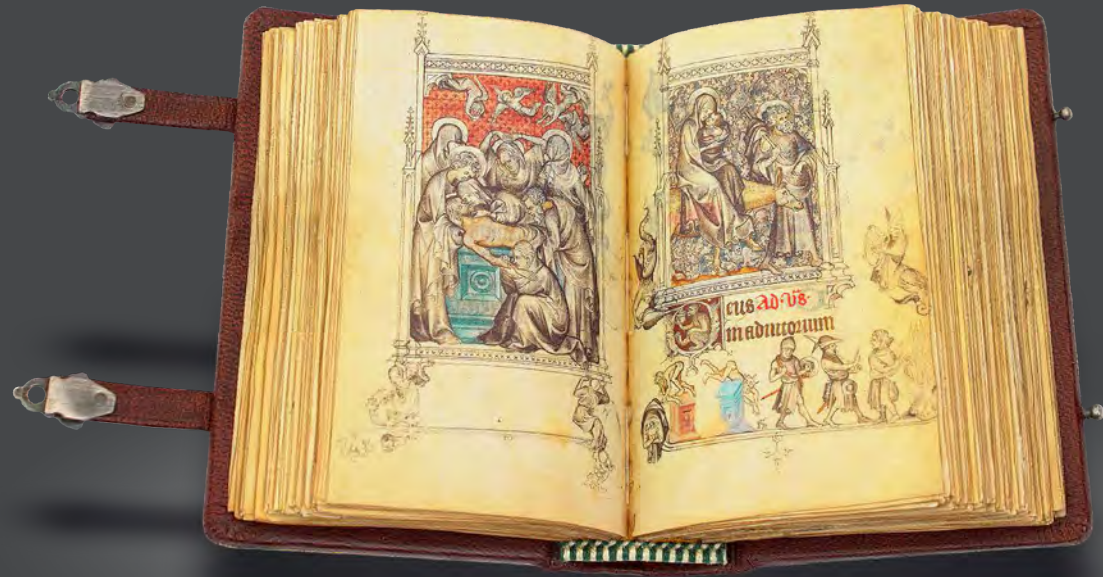 Deus Ad·vs̄·
in adiutorium